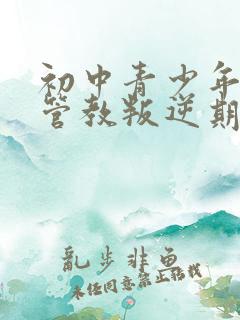 初中青少年
管教叛逆期
乱步非鱼
未经同意禁止转载